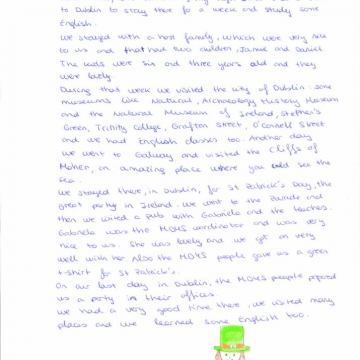 to Dublin to stay there for a week and study some
English.
We stayed with a host family, which were very nice
to us and that had two children, Jamie and Daniel.
The kids were six and three years old and they
were lovely.
During that week we visited the city of Dublin: some
museums like Natural, Archaeology History Museum
and the National Museum of Ireland, Stephen's
Green, Trinity College, Grafton Street, O'Connell Street
and we had English classes too. Another day
we went to Galway and visited the Cliffs of
Moher, an amazing place where you could see the
sea.
We stayed there, in Dublin, for St Patrick's Day, the
great party in Ireland. We went to the Parade and
then we visited a pub with Gabriela and the teachers.
Gabriela was the MOYS coordinator and was very
nice to us. She was lovely and we got on very
well with her. Also the MOYS people gave us a green
t-shirt for St Patrick's.
On our last day in Dublin, the MOYS people prepared
us a party in their offices.
We had a very good time there, we visited many
places and we learned some English too.